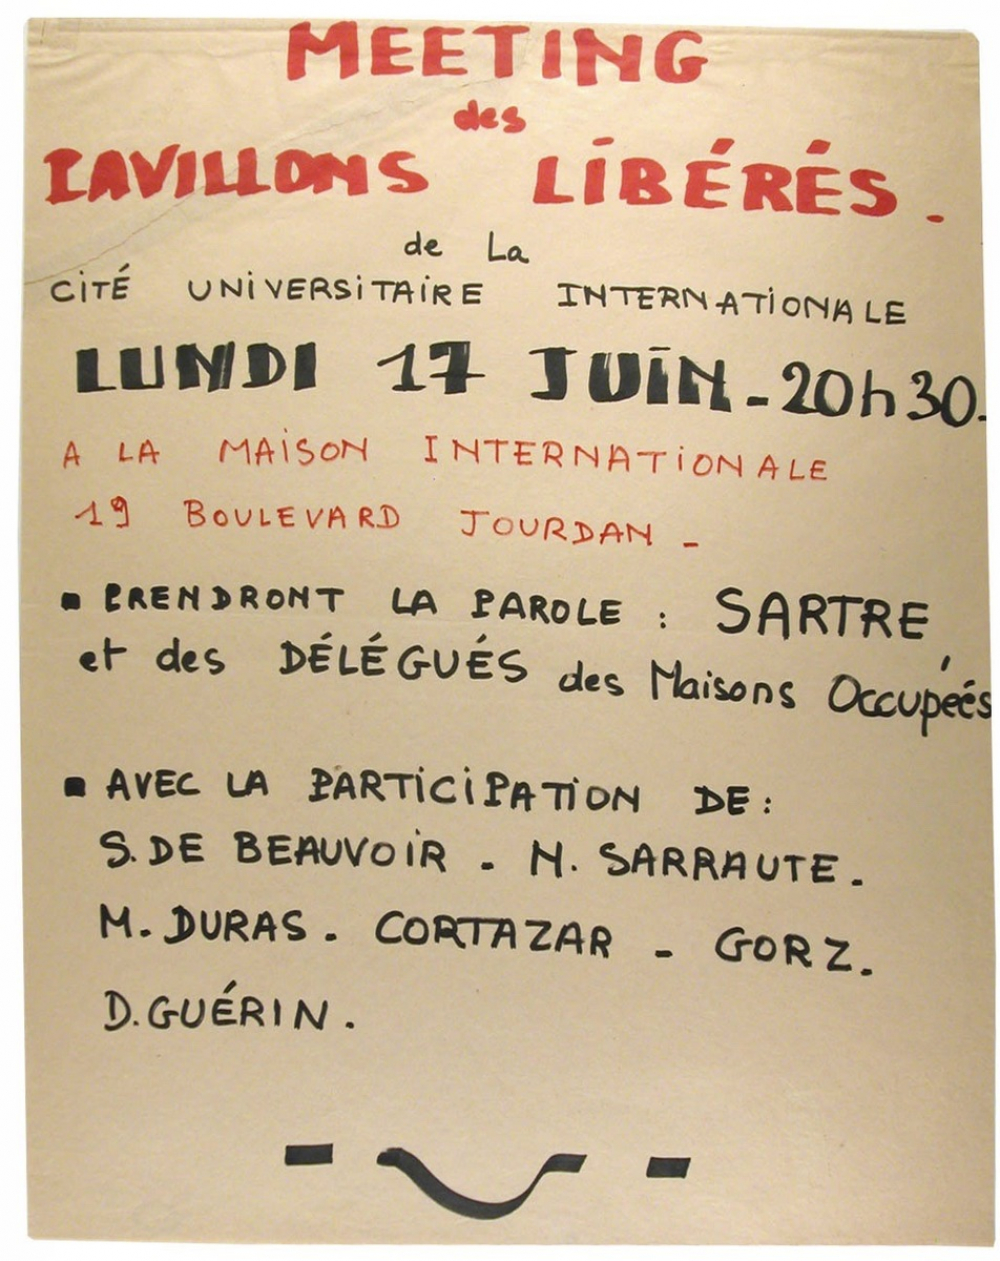 MEETING
des
PAVILLONS LIBÉRÉS.
de La
CITÉ UNIVERSITAIRE INTERNATIONALE
LUNDI 17 JUIN - 20h30.
A LA MAISON INTERNATIONALE
19 BOULEVARD JOURDAN -
▪ PRENDRONT LA PAROLE : SARTRE,
et des DÉLÉGUÉS des Maisons Occupées
▪ AVEC LA PARTICIPATION DE :
S. DE BEAUVOIR - N. SARRAUTE.
M. DURAS. CORTAZAR - GORZ.
D. GUÉRIN.